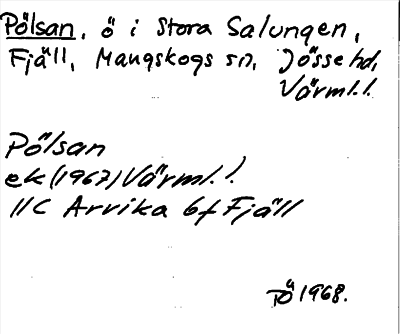 Pölsan, ö i Stora Salungen,
Fjäll, Mangskogs sn, Jösse hd,
Värml.l.
Pölsan
ek (1967) Värml. l.
11C Arvika 6f Fjäll
TÖ 1968.